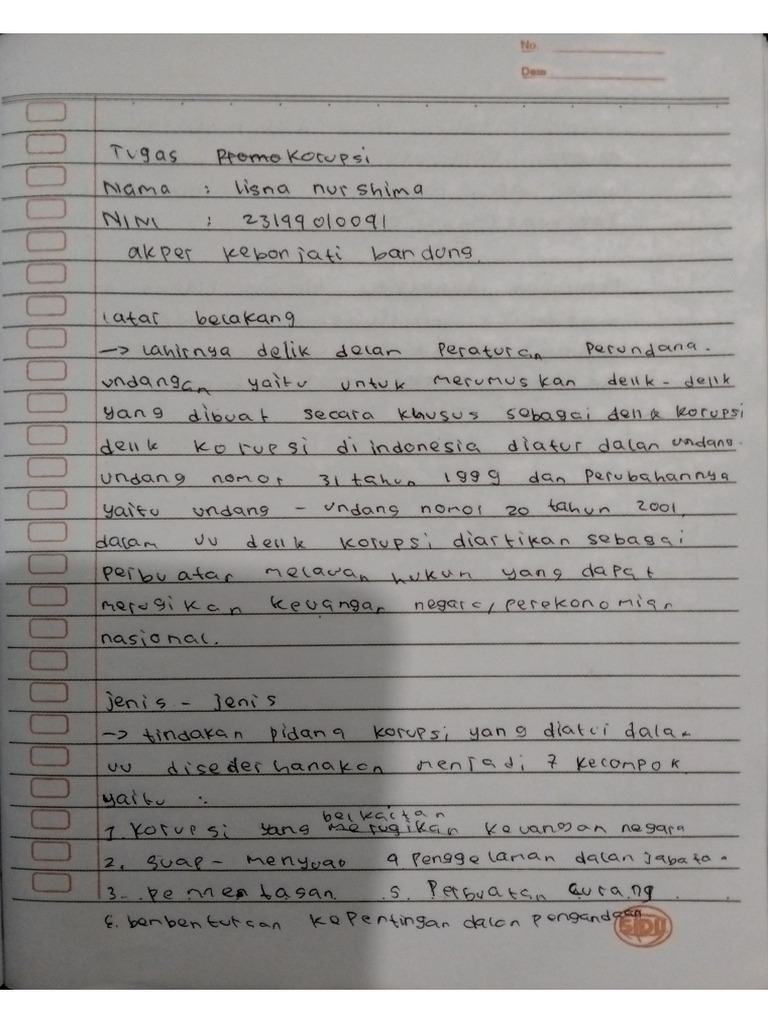 No.
Date
Tugas Promokorupsi
Nama : lisna nurshima
NIM : 23199010091
akper kebonjati bandung.
latar belakang
-> Lahirnya delik dalam peraturan perundana-
undangan yaitu untuk merumuskan delik-delik
yang dibuat secara khusus sebagai delik korupsi
delik korupsi di indonesia diatur dalan undang-
undang nomor 31 tahun 1999 dan perubahannya
yaitu undang-undang nomor 20 tahun 2001,
dalam uu delik korupsi diartikan sebagai
perbuatan melawan hukun yang dapat
merugikan keuangan negara, perekonomian
nasional.
jenis - jenis
-> tindakan pidana korupsi yang diatur dalam
uu disederhanakan menjadi 7 kelompok
yaitu :
berkaitan
1. korupsi yang merugikan keuangan negara
2. suap-menyuap 4 penggelaman dalan jabatan
3. pemerasan 5. perbuatan curang
6. benbenturan kepentingan dalan pengandaan
SIDU